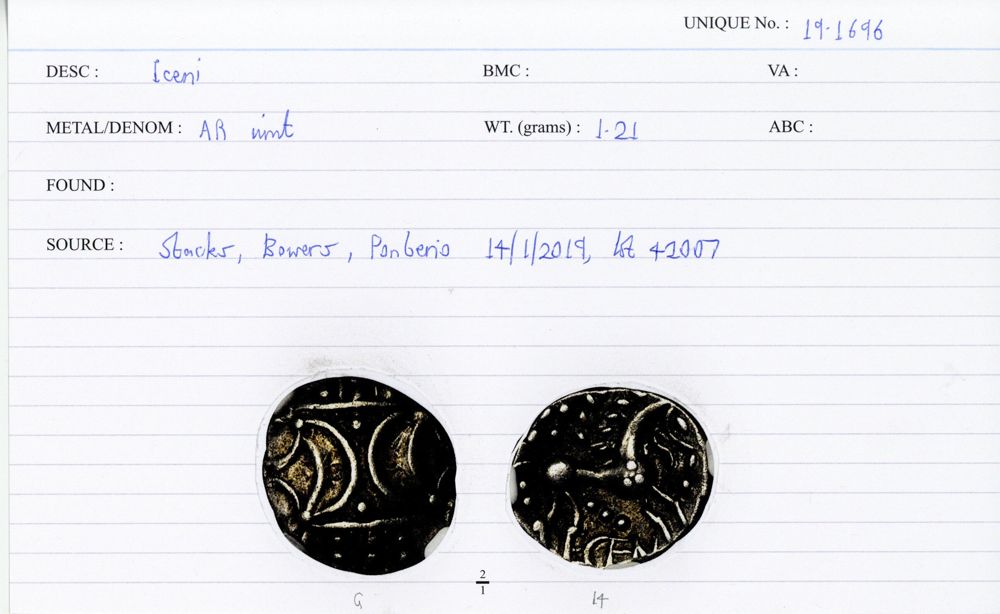 UNIQUE No. : 19.1696
DESC : Iceni BMC : VA :
METAL/DENOM : AR unit WT. (grams) : 1.21 ABC :
FOUND :
SOURCE : Stacks, Bowers, Ponterio 14/1/2019, lot 42007
2
1
G 14